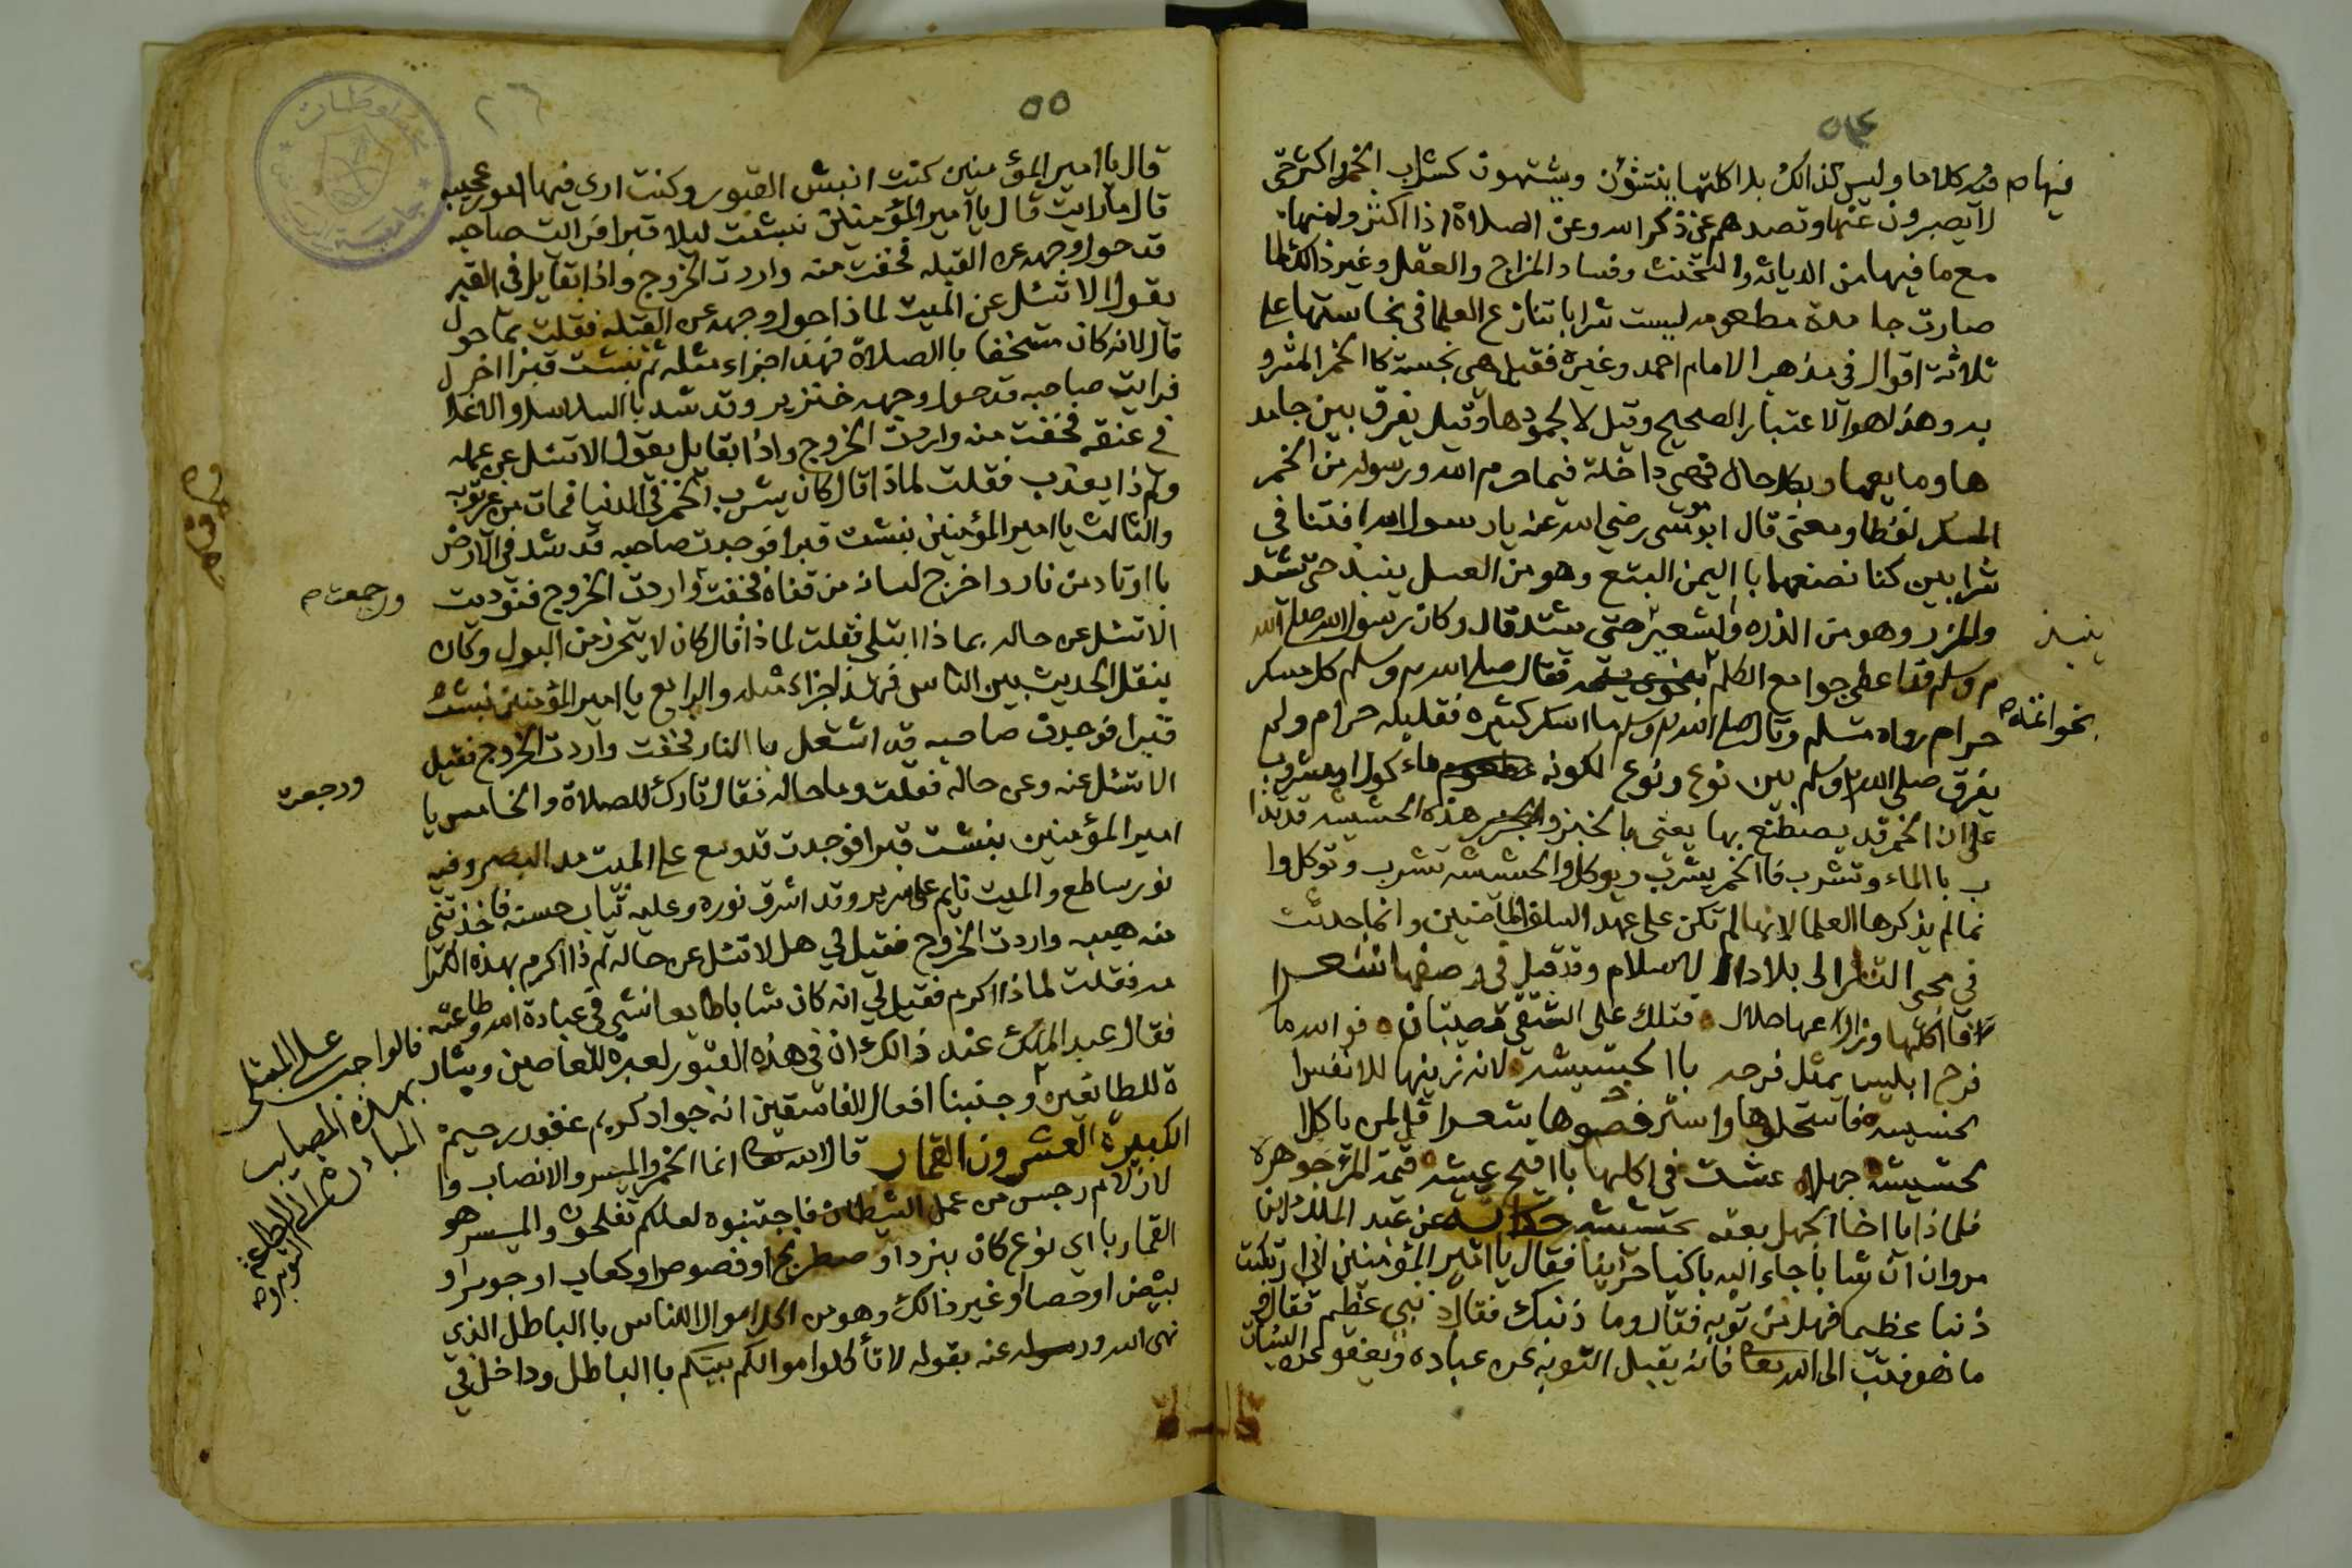 ٥٤
فيهام فيه كلاما وليس كذالك بل اكلتها ينتشؤن ويشتهون كشراب الخمر واكثر حتى
لا يصبرون عنها وتصدهم عن ذكر الله وعن الصلاة اذا اكثرو امنها
مع ما فيها من الدياثه والتخنث وفساد المزاج والعقل وغير ذالك لما
صارت جامدة مطعومه ليست شرابا تنازع العلما في نجاستها على
ثلاثة اقوال في مذهب الامام احمد وغيره فقيل هي نجسة كا الخمر المشرو
به وهذا هو الاعتبار الصحيح وقيل لا لجمودها وقيل يفرق بين جامد
ها ومايعها وبكل حال فهي داخلة فيما حرم الله ورسوله من الخمر
المسكر لفظا ومعنى قال ابو موسى رضي الله عنه يا رسول الله افتنا في
شرابين كنا نصنعهما با اليمن البتع وهو من العسل ينبذ حتى يشتد
والمزر وهو من الذره والشعير حتى يشتد قال وكان رسول الله صلى الله
ينبذ
م وسلم قد اعطي جوامع الكلم فقال صلى الله م وسلم كل مسكر
بخواتمه
حرام رواه مسلم وقال صلى الله م وسلم ما اسكر كثيره فقليله حرام ولم
يفرق صلى الله م وسلم بين نوع ونوع لكونه ماء كول او مشروب
على ان الخمر قد يصطنع بها يعنى با الخبز هذه الحشيشه قد تذا
ب با الماء وتشرب فا الخمر يشرب ويوكل والحشيشة تشرب وتوكل وا
نما لم يذكرها العلما لانها لم تكن على عهد السلف الماضين وانما حدثت
في مجي التتار الى بلاد الاسلام وقد قيل في وصفها شعرا
فا اكلها وزارعها حلال ٥ فتلك على الشقي قصيبتان ٥ فو الله ما
فرح ابليس بمثل فرحه با الحشيشة لانه زينها للانفس ا
لخسيسه فاستحلوها واسترخصوها شعرا قل لمن ياكل ا
لحشيشة جهلا عشت في اكلها با اقبح عيشه قيمة المرء جوهرة
فلماذا يا اخا الجهل بعته بحشيشه حكايه عن عبد الملك ابن
مروان ان شابا جاء اليه باكيا حزينا فقال يا امير المؤمنين اني ارتكبت
ذنبا عظيما فهل من توبه فقال وما ذنبك فقال ذنبي عظيم فقال و
ما هو فتب الى الله تعا فانه يقبل التوبه عن عباده ويعفو عن السيئات
٥٥
٢٦
قال يا امير المؤمنين كنت انبش القبور وكنت ارى فيها امور عجيبه
قال ما رايت قال يا امير المؤمنين نبشت ليلا قبرا فرايت صاحبه
قد حول وجهه عن القبله فخفت منه واردت الخروج واذا بقايل في القبر
يقول الا تسئل عن الميت لماذا حول وجهه عن القبله فقلت بما حول
قال لانه كان مستخفا با الصلاة فهذا جزاء مثله ثم نبشت قبرا اخر
فرايت صاحبه قد حول وجهه خنزير وقد شد با السلاسل والاغلال
في عنقه فخفت منه واردت الخروج واذا بقايل يقول الا تسئل عن عمله
ولم ذا يعذب فقلت لماذا قال كان يشرب الخمر في الدنيا فمات من غير توبه
والثالث يا امير المؤمنين نبشت قبرا فوجدت صاحبه قد شد في الارض
با اوتاد من نار واخرج لسانه من قفاه فخفت واردت الخروج فنوديت
ورجعت م
الا تسئل عن حاله بماذا ابتلى فقلت لماذا قال كان لا يتحرز من البول وكان
ينقل الحديث بين الناس فهذا جزاء مثله والرابع يا امير المؤمنين نبشت
قبرا فوجدت صاحبه قد اشتعل با النار فخفت واردت الخروج فقيل
ورجعت
الا تسئل عنه وعن حاله فقلت وما حاله فقال تارك للصلاة والخامس يا
امير المؤمنين نبشت قبرا فوجدت قد وسع على الميت مد البصر وفيه
نور ساطع والميت نايم على سرير وقد اشرق نوره وعليه ثياب حسنه فاخذتني
منه هيبه واردت الخروج فقيل لي هل لا تسئل عن حاله لم ذا اكرم بهذه الكرا
مه فقلت لماذا اكرم فقيل لي انه كان شابا طايعا نشى في عبادة الله وطاعته
فقال عبد الملك عند ذالك ان في هذه القبور لعبرة للعاصين وبشار
ة للطائعين وجنبنا افعال الفاسقين انه جواد كريم غفور رحيم
فالواجب على المبتلى
بهذه المصايب
المبادرة الى الطاعة
والتوبه
الكبيرة العشرون القمار قال الله تعا انما الخمر والميسر والانصاب وا
لازلام رجس من عمل الشيطان فاجتنبوه لعلكم تفلحون والميسر هو
القمار با اي نوع كان بنرد او صطرنج او فصوص او كعاب او جوز او
بيض او حصا او غير ذالك وهو من اكل اموال الناس با الباطل الذي
نهى الله ورسوله عنه بقوله لا تأكلوا اموالكم بينكم با الباطل وداخل في